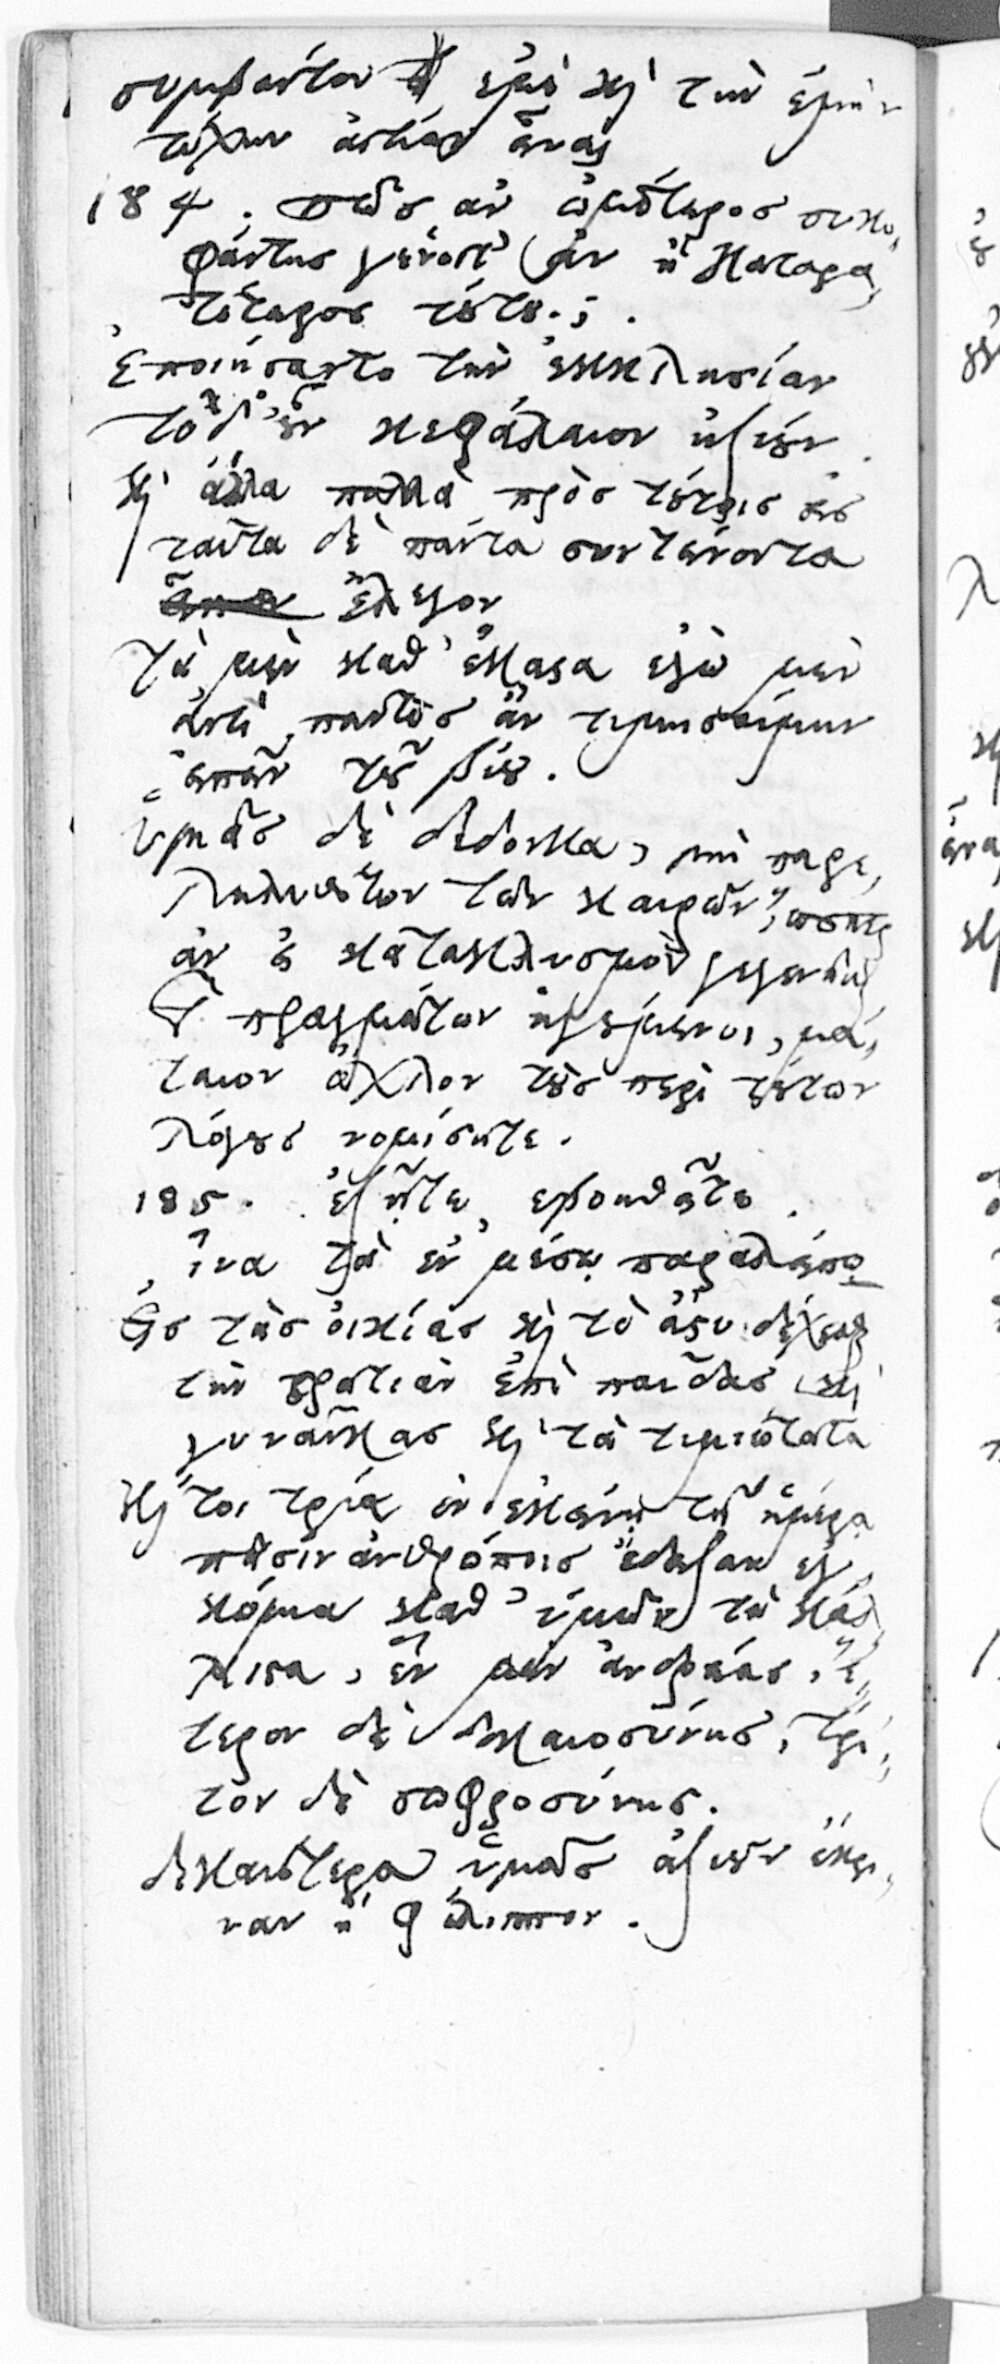 συμβάντων ἐμὲ καὶ τὴν ἐμὴν
τύχην αἰτίαν εἶναι
184. πῶς ἂν ὠμότερος συκο-
φάντης γένοιτ' ἂν ἢ καταρα-
τότερος τούτου.;.
ἐποιήσαντο τὴν ἐκκλησίαν
τὸ δ' οὖν κεφάλαιον ἠξίουν
καὶ ἄλλα πολλὰ πρὸς τούτοις εἰς
ταῦτα δὲ πάντα συντείνοντα
ἔλεγον
τὰ μὲν καθ' ἕκαστα ἐγὼ μὲν
ἀντὶ παντὸς ἂν τιμησαίμην
εἰπεῖν τοῦ βίου.
ὑμᾶς δὲ δέδοικα, μὴ παρε-
ληλυθότων τῶν καιρῶν, ὥσπερ
ἂν εἰ κατακλυσμὸν γεγενῆσθαι
τῶν πραγμάτων ἡγούμενοι, μά-
ταιον ὄχλον τοὺς περὶ τούτων
λόγους νομίσητε.
185. ἐξῇτε, ἐβοηθεῖτε.
ἵνα τὰ ἐν μέσῳ παραλείπω
εἰς τὰς οἰκίας καὶ τὸ ἄστυ δέχεσθαι
τὴν στρατιὰν ἐπὶ παῖδας καὶ
γυναῖκας καὶ τὰ τιμιώτατα
καί τοι τρία ἐν ἐκείνῃ τῇ ἡμέρᾳ
πᾶσιν ἀνθρώποις ἔδειξαν ἐγ-
κώμια καθ' ὑμῶν τὰ κάλ-
λιστα, ἓν μὲν ἀνδρείας, ἕ-
τερον δὲ δικαιοσύνης, τρί-
τον δὲ σωφροσύνης.
δικαιότερα ὑμᾶς ἀξιοῦν ἔκρι-
ναν ἢ Φίλιππον.